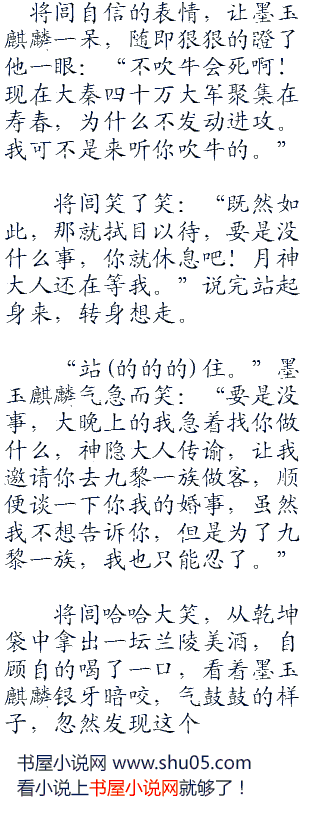 将闾自信的表情，让墨玉
麒麟一呆，随即狠狠的瞪了
他一眼：“不吹牛会死啊！
现在大秦四十万大军聚集在
寿春，为什么不发动进攻。
我可不是来听你吹牛的。”
将闾笑了笑：“既然如
此，那就拭目以待，要是没
什么事，你就休息吧！月神
大人还在等我。”说完站起
身来，转身想走。
“站(的的的)住。”墨
玉麒麟气急而笑：“要是没
事，大晚上的我急着找你做
什么，神隐大人传谕，让我
邀请你去九黎一族做客，顺
便谈一下你我的婚事，虽然
我不想告诉你，但是为了九
黎一族，我也只能忍了。”
将闾哈哈大笑，从乾坤
袋中拿出一坛兰陵美酒，自
顾自的喝了一口，看着墨玉
麒麟银牙暗咬，气鼓鼓的样
子，忽然发现这个
书屋小说网 www.shu05.com
看小说上书屋小说网就够了！